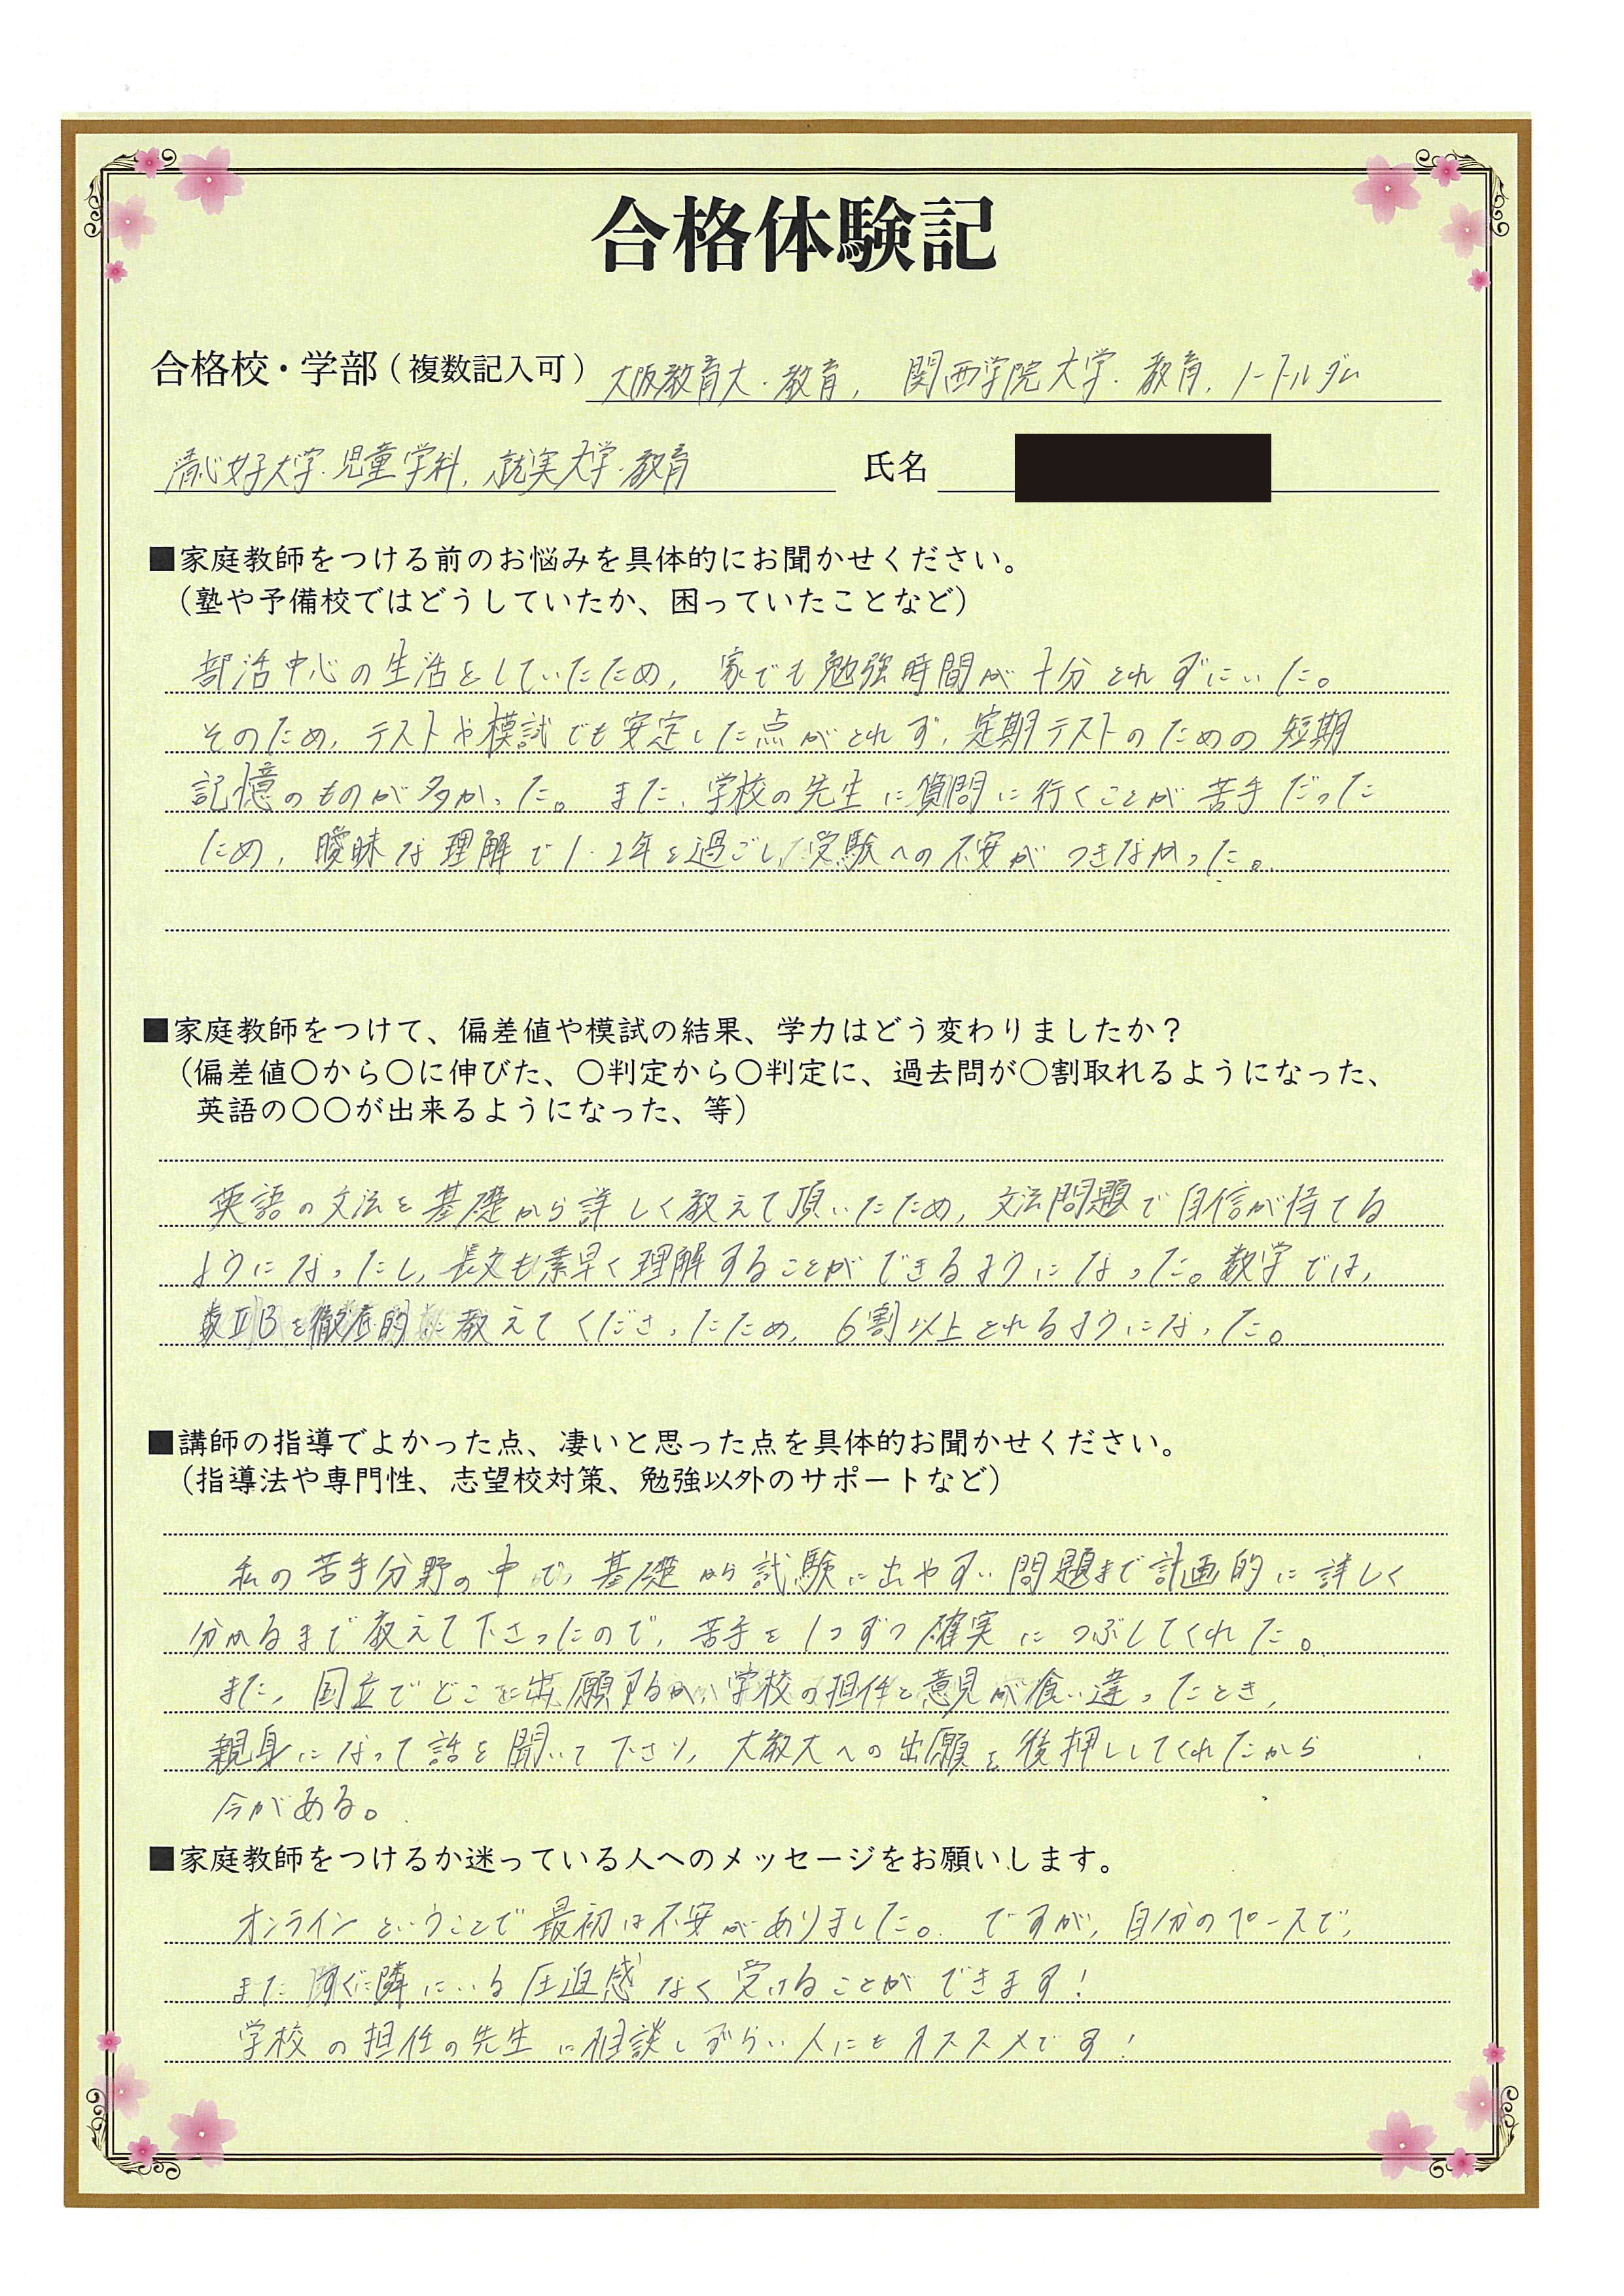 合格体験記
合格校・学部（複数記入可）大阪教育大・教育, 関西学院大学・教育, ノートルダム
清心女子大学・児童学科, 就実大学・教育 氏名
■家庭教師をつける前のお悩みを具体的にお聞かせください。
（塾や予備校ではどうしていたか、困っていたことなど）
部活中心の生活をしていたため, 家でも勉強時間が十分とれずにいた。
そのため, テストや模試でも安定した点がとれず, 定期テストのための短期
記憶のものが多かった。また, 学校の先生に質問に行くことが苦手だった
ため, 曖昧な理解で1・2年を過ごした受験への不安がつきなかった。
■家庭教師をつけて、偏差値や模試の結果、学力はどう変わりましたか？
（偏差値〇から〇に伸びた、〇判定から〇判定に、過去問が〇割取れるようになった、
英語の〇〇が出来るようになった、等）
英語の文法を基礎から詳しく教えて頂いたため, 文法問題で自信が持てる
ようになったし, 長文も素早く理解することができるようになった。数学では,
数ⅡBを徹底的に教えてくださったため, 6割以上とれるようになった。
■講師の指導でよかった点、凄いと思った点を具体的お聞かせください。
（指導法や専門性、志望校対策、勉強以外のサポートなど）
私の苦手分野の中で, 基礎から試験に出やすい問題まで計画的に詳しく
分かるまで教えて下さったので, 苦手を1つずつ確実につぶしてくれた。
また, 国立でどこに出願するか, 学校の担任と意見が食い違ったとき,
親身になって話を聞いて下さり, 大教大への出願を後押ししてくれたから
今がある。
■家庭教師をつけるか迷っている人へのメッセージをお願いします。
オンラインということで最初は不安がありました。ですが, 自分のペースで,
またすぐに隣にいる圧迫感なく受けることができます！
学校の担任の先生に相談しずらい人にもオススメです！